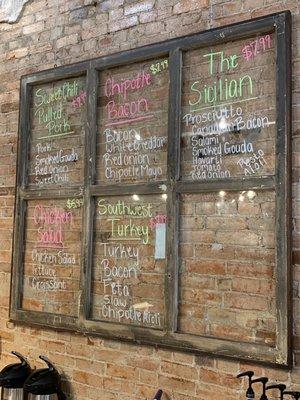 Sweet Chili
Pulled
Pork
Pork
Smoked Gouda
Red Onion
Sweet Chili
Chipotle
Bacon
$7.29
Bacon
White Cheddar
Red Onion
Chipotle Mayo
The
Sicilian
$7.99
Prosciutto
Canadian Bacon
Salami
Smoked Gouda
Havarti
Tomato
Red Onion
Pesto
Mayo
Chicken
Salad
Chicken Salad
Lettuce
Croissant
Southwest
Turkey
Turkey
Bacon
Feta
Slaw
Chipotle Aioli